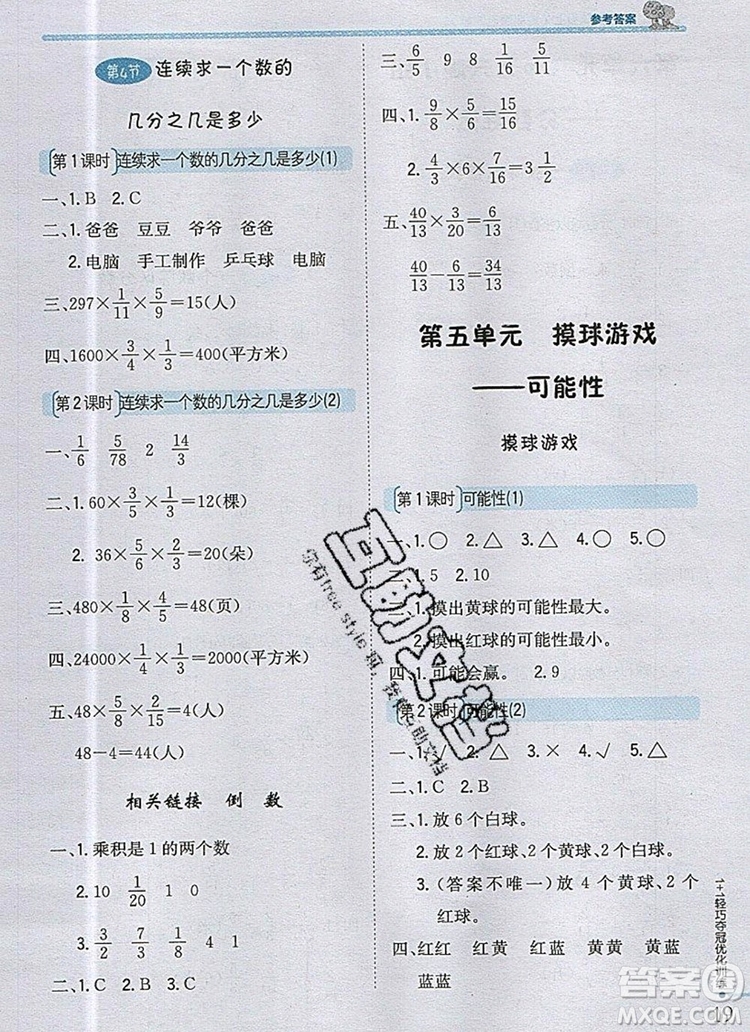 参考答案
第4节 连续求一个数的
几分之几是多少
第1课时 连续求一个数的几分之几是多少(1)
一、1.B 2.C
二、1.爸爸 豆豆 爷爷 爸爸
2.电脑 手工制作 乒乓球 电脑
三、297×1/11×5/9=15(人)
四、1600×3/4×1/3=400(平方米)
第2课时 连续求一个数的几分之几是多少(2)
一、1/6 5/78 2 14/3
二、1.60×3/10×2/3=12(棵)
2. 36×5/6×2/3=20(朵)
三、480×1/8×4/5=48(页)
四、24000×1/4×1/3=2000(平方米)
五、48×5/8×2/15=4(人)
48-4=44(人)
相关链接 倒 数
一、1.乘积是1的两个数
2.10 1/20 1 0
3. 3/2 7/3 9 4
二、1.C 2.C
三、6/5 9 8 1/15 5/11
四、1. 9/8×5/3=15/8
2. 4/3×6×7/16=3 1/2
五、40/13×3/20=6/13
40/13-6/13=34/13
第五单元 摸球游戏
——可能性
摸球游戏
第1课时 可能性(1)
一、1.○ 2.△ 3.△ 4.○ 5.○
二、1.5 2.10
三、1.摸出黄球的可能性最大。
2.摸出红球的可能性最小。
四、1.可能会赢。 2.9
第2课时 可能性(2)
一、1.√ 2.△ 3.√ 4.× 5.△
二、1.C 2.B
三、1.放6个白球。
2.放2个红球、2个黄球、2个白球。
3.(答案不唯一)放4个黄球、2个
红球。
四、红红 红黄 红蓝 黄黄 黄蓝
蓝蓝
1+1轻巧夺冠优化训练
19
互助文档
你有free style吗,我有互助文档
答案圈
MXQE.COM